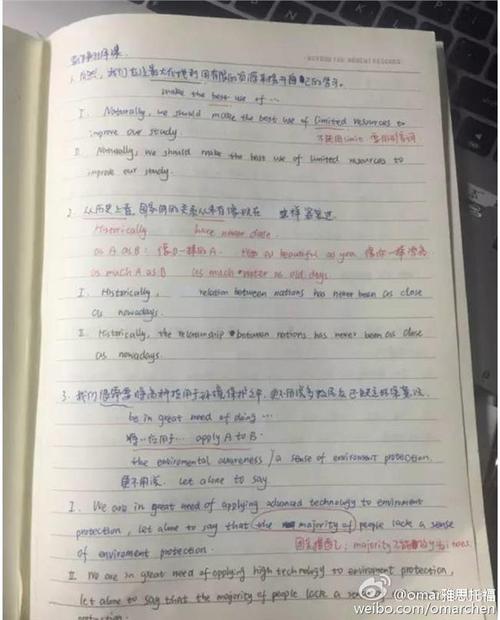 1. 自然,我们应该最大化地利用有限的资源来提升自己的学习。
make the best use of …
I. Naturally, we should make the best use of limited resources to
improve our study.
II. Naturally, we should make the best use of limited resources to
improve our study.
2. 从历史上看,国家间的关系从来没有像现在这样紧密过
Historically have never close
as A as B: 像B一样的A.
as much A as B as much water as old days
I. Historically, relation between nations has never been as close
as nowadays.
II. Historically, the relationship between nations has never been as close
as nowadays.
3. 我们很需要将高科技用于环境保护之中,更不用说
be in great need of doing …
将…应用于… apply A to B.
the enviromental awareness / a sense of enviroment protection.
更不用说. let alone to say
I. We are in great need of applying advanced technology to enviroment
protection, let alone to say that the majority of people lack a sense
of enviroment protection.
II. We are in great need of applying high technology to enviroment protection,
let alone to say that the majority of people lack a
protection.
@omar雅思托福
weibo.com/omarchen